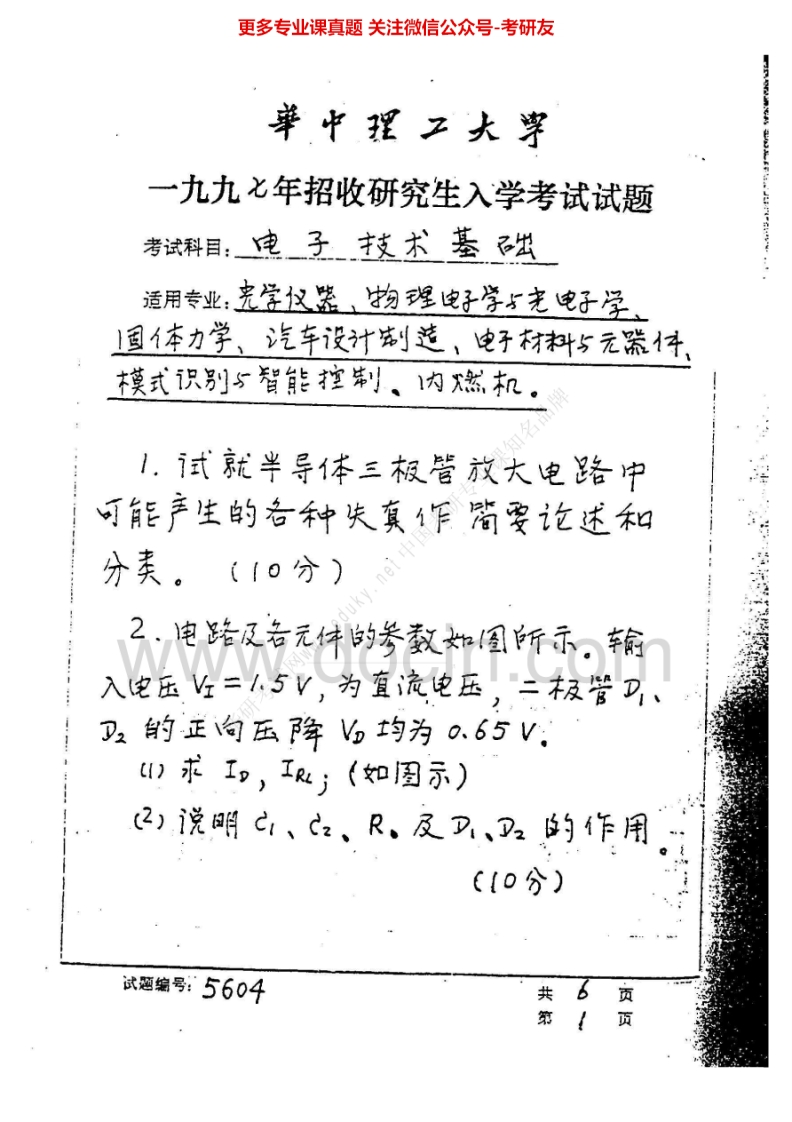 更多专业课真题 关注微信公众号-考研友
華中理工大学
一九九七年招收研究生入学考试试题
考试科目:电子技术基础
适用专业:光学仪器、物理电子学与光电子学、
固体力学、汽车设计制造、电子材料与元器件、
模式识别与智能控制、内燃机。
1. 试就半导体三极管放大电路中
可能产生的各种失真作简要论述和
分类。(10分)
2. 电路及各元件的参数如图所示。输
入电压 VI=1.5V, 为直流电压, 二极管 D1、
D2 的正向压降 VD 均为 0.65V.
(1) 求 ID, IRL; (如图示)
(2) 说明 C1、C2、R。及 D1、D2 的作用。
(10分)
试题编号: 5604
共 6 页
第 1 页
www.docin.com